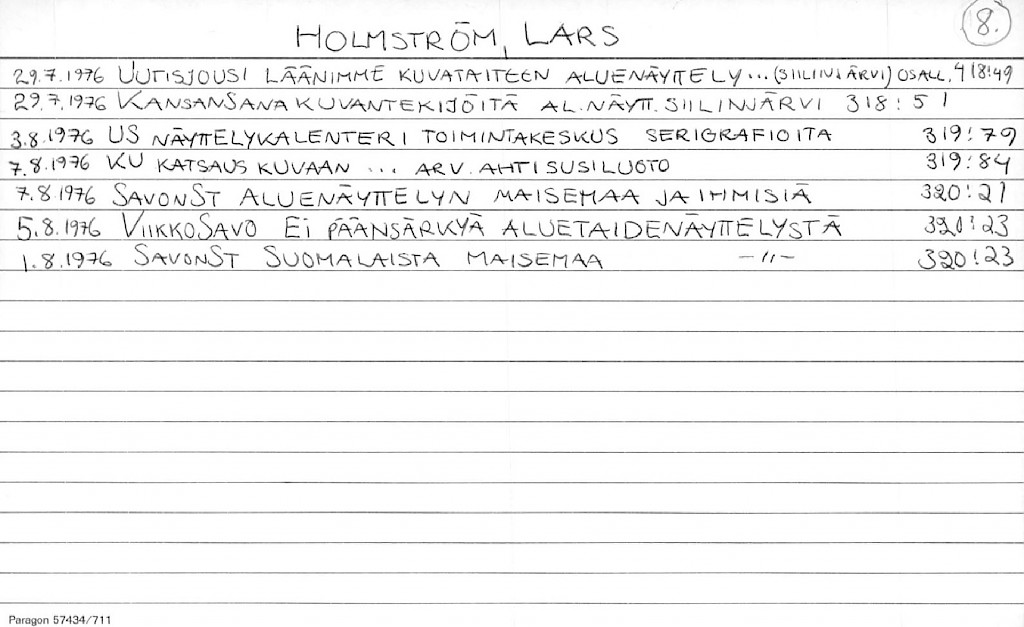 8.
HOLMSTRÖM, LARS
29.7.1976 UUTISJOUSI LÄÄNIMME KUVATAITEEN ALUENÄYTTELY... (SIILINJÄRVI) OSALL, 418:49
29.7.1976 KANSANSANA KUVANTEKIJÖITÄ AL.NÄYTT. SIILINJÄRVI 318:51
3.8.1976 US NÄYTTELYKALENTERI TOIMINTAKESKUS SERIGRAFIOITA 319:79
7.8.1976 KU KATSAUS KUVAAN ... ARV. AHTI SUSILUOTO 319:84
7.8.1976 SAVONST ALUENÄYTTELYN MAISEMAA JA IHMISIÄ 320:21
5.8.1976 VIIKKOSAVO EI PÄÄNSÄRKYÄ ALUETAIDENÄYTTELYSTÄ 320:23
1.8.1976 SAVONST SUOMALAISTA MAISEMAA -"- 320:23
Paragon 57434/711